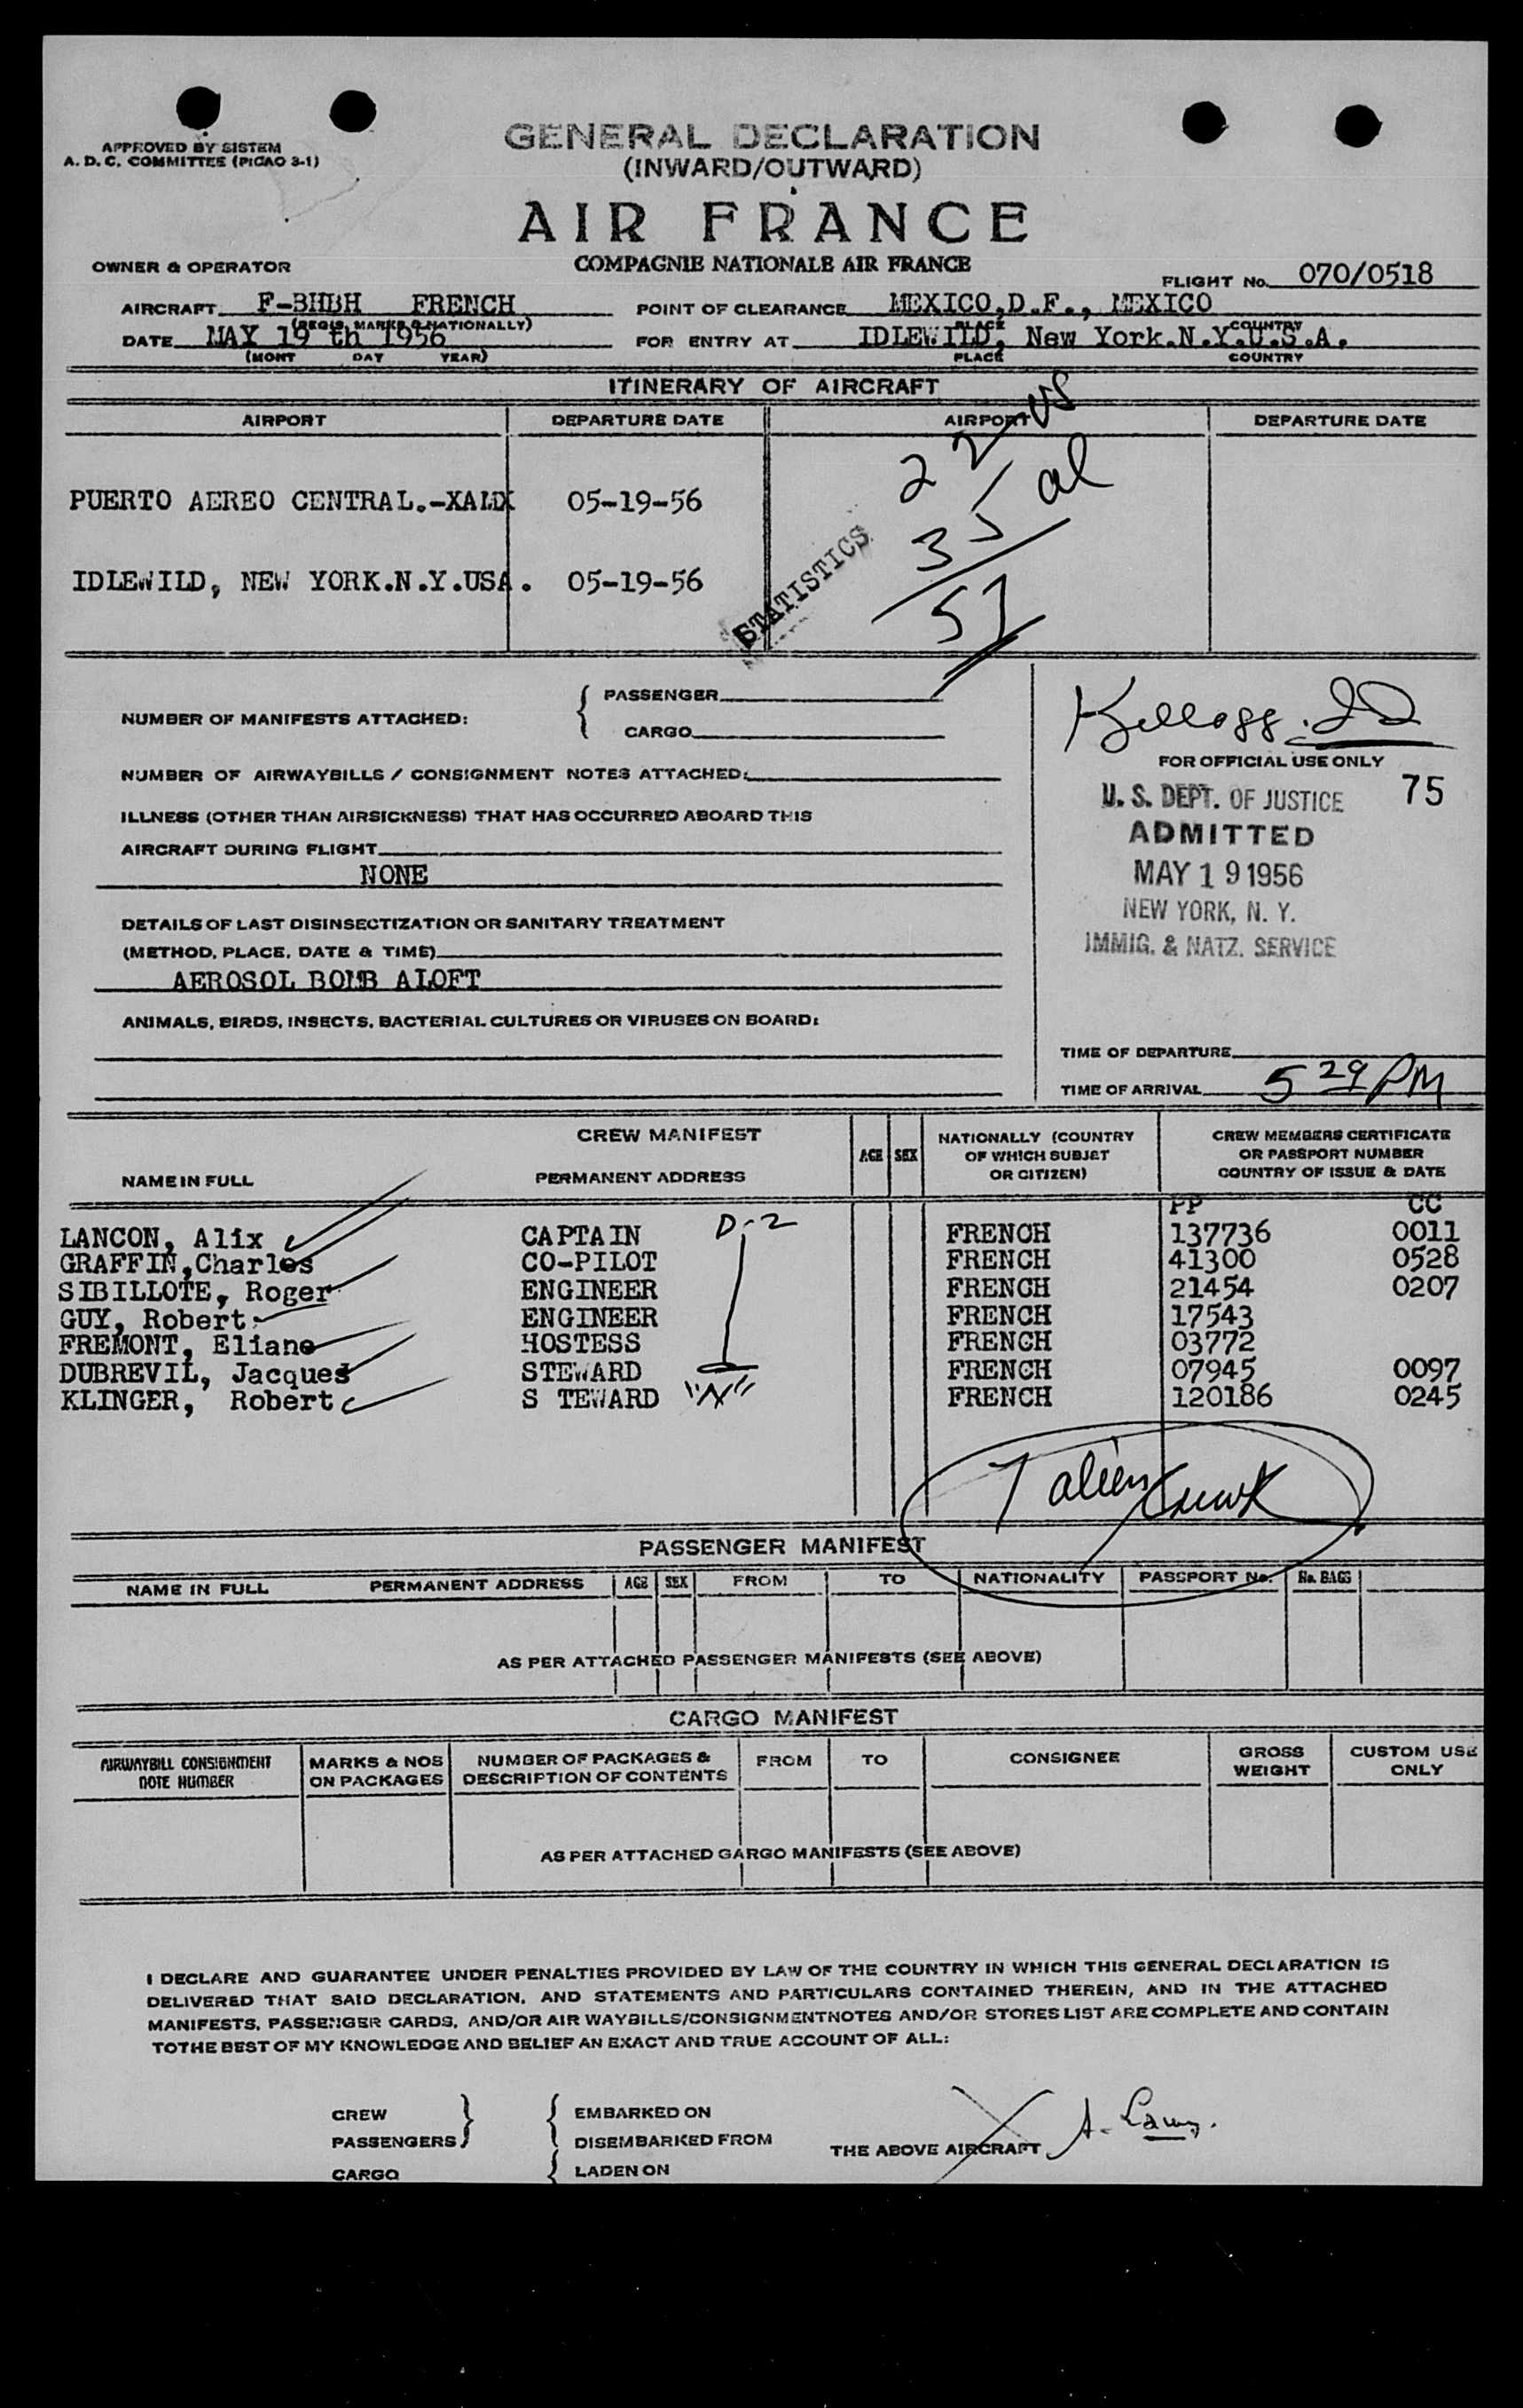 APPROVED BY SISTEM
A. D. C. COMMITTEE (PICAO 3-1)
GENERAL DECLARATION
(INWARD/OUTWARD)
AIR FRANCE
COMPAGNIE NATIONALE AIR FRANCE
OWNER & OPERATOR
FLIGHT No. 070/0518
AIRCRAFT F-BHBH FRENCH POINT OF CLEARANCE MEXICO,D.F., MEXICO
(REGIS. MARKS & NATIONALLY) PLACE COUNTRY
DATE MAY 19 th 1956 FOR ENTRY AT IDLEWILD, New York.N.Y.U.S.A.
(MONT DAY YEAR) PLACE COUNTRY
ITINERARY OF AIRCRAFT
AIRPORT DEPARTURE DATE AIRPORT DEPARTURE DATE
22 US
PUERTO AEREO CENTRAL.-XAMX 05-19-56
35 al
STATISTICS
IDLEWILD, NEW YORK.N.Y.USA. 05-19-56
57
NUMBER OF MANIFESTS ATTACHED:
PASSENGER
CARGO
Kellogg
FOR OFFICIAL USE ONLY
NUMBER OF AIRWAYBILLS / CONSIGNMENT NOTES ATTACHED:
U. S. DEPT. OF JUSTICE 75
ADMITTED
MAY 19 1956
NEW YORK, N. Y.
IMMIG. & NATZ. SERVICE
ILLNESS (OTHER THAN AIRSICKNESS) THAT HAS OCCURRED ABOARD THIS
AIRCRAFT DURING FLIGHT
NONE
DETAILS OF LAST DISINSECTIZATION OR SANITARY TREATMENT
(METHOD, PLACE, DATE & TIME)
AEROSOL BOMB ALOFT
ANIMALS, BIRDS, INSECTS, BACTERIAL CULTURES OR VIRUSES ON BOARD:
TIME OF DEPARTURE
TIME OF ARRIVAL 5 29 PM
CREW MANIFEST
NAME IN FULL PERMANENT ADDRESS AGE SEX NATIONALLY (COUNTRY OF WHICH SUBJET OR CITIZEN) CREW MEMBERS CERTIFICATE OR PASSPORT NUMBER COUNTRY OF ISSUE & DATE
PP CC
LANCON, Alix CAPTAIN D-2 FRENCH 137736 0011
GRAFFIN,Charles CO-PILOT FRENCH 41300 0528
SIBILLOTE, Roger ENGINEER FRENCH 21454 0207
GUY, Robert ENGINEER FRENCH 17543
FREMONT, Eliane HOSTESS FRENCH 03772
DUBREVIL, Jacques STEWARD FRENCH 07945 0097
KLINGER, Robert S TEWARD "N" FRENCH 120186 0245
7 alien
PASSENGER MANIFEST
NAME IN FULL PERMANENT ADDRESS AGE SEX FROM TO NATIONALITY PASSPORT No. No. BAGS
AS PER ATTACHED PASSENGER MANIFESTS (SEE ABOVE)
CARGO MANIFEST
AIRWAYBILL CONSIGNMENT NOTE NUMBER MARKS & NOS ON PACKAGES NUMBER OF PACKAGES & DESCRIPTION OF CONTENTS FROM TO CONSIGNEE GROSS WEIGHT CUSTOM USE ONLY
AS PER ATTACHED CARGO MANIFESTS (SEE ABOVE)
I DECLARE AND GUARANTEE UNDER PENALTIES PROVIDED BY LAW OF THE COUNTRY IN WHICH THIS GENERAL DECLARATION IS
DELIVERED THAT SAID DECLARATION, AND STATEMENTS AND PARTICULARS CONTAINED THEREIN, AND IN THE ATTACHED
MANIFESTS, PASSENGER CARDS, AND/OR AIR WAYBILLS/CONSIGNMENTNOTES AND/OR STORES LIST ARE COMPLETE AND CONTAIN
TOTHE BEST OF MY KNOWLEDGE AND BELIEF AN EXACT AND TRUE ACCOUNT OF ALL:
CREW EMBARKED ON
PASSENGERS DISEMBARKED FROM THE ABOVE AIRCRAFT
CARGO LADEN ON